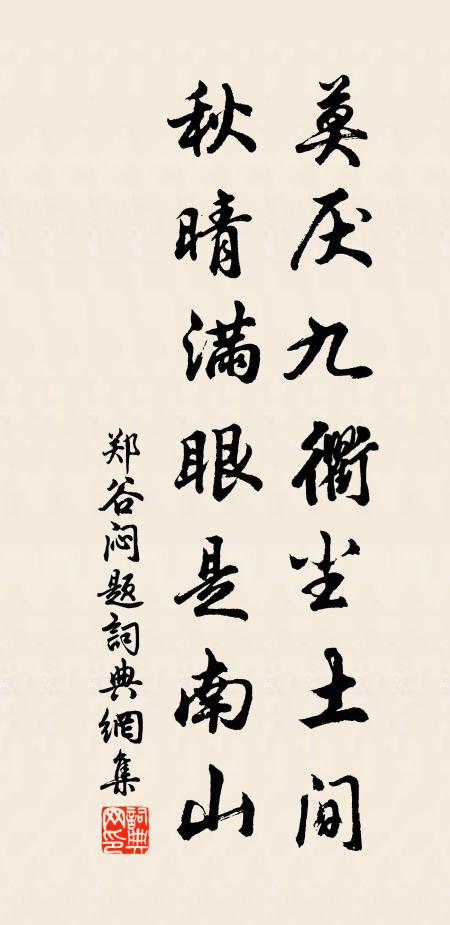 莫厌九衢尘土间
秋晴满眼是南山
郑谷闷题词典網集
詞典网印